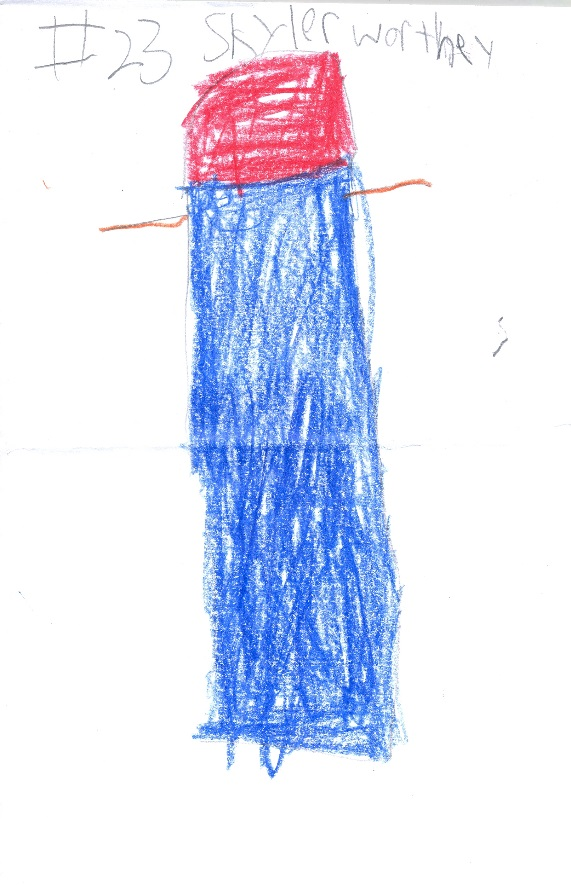 #23 Skyler worthey